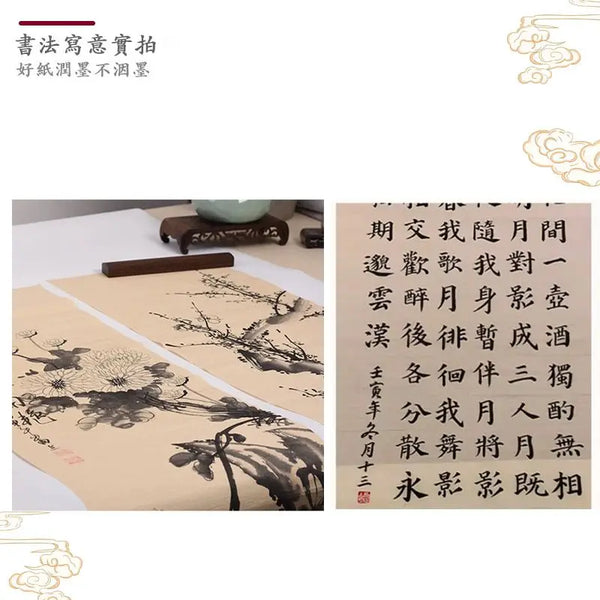 書法寫意實拍
好紙潤墨不洇墨
間一壺酒獨酌無相
月對影成三人月既
隨我身暫伴月將影
我歌月徘徊我舞影
交歡醉後各分散永
期邈雲漢
壬寅年冬月十三